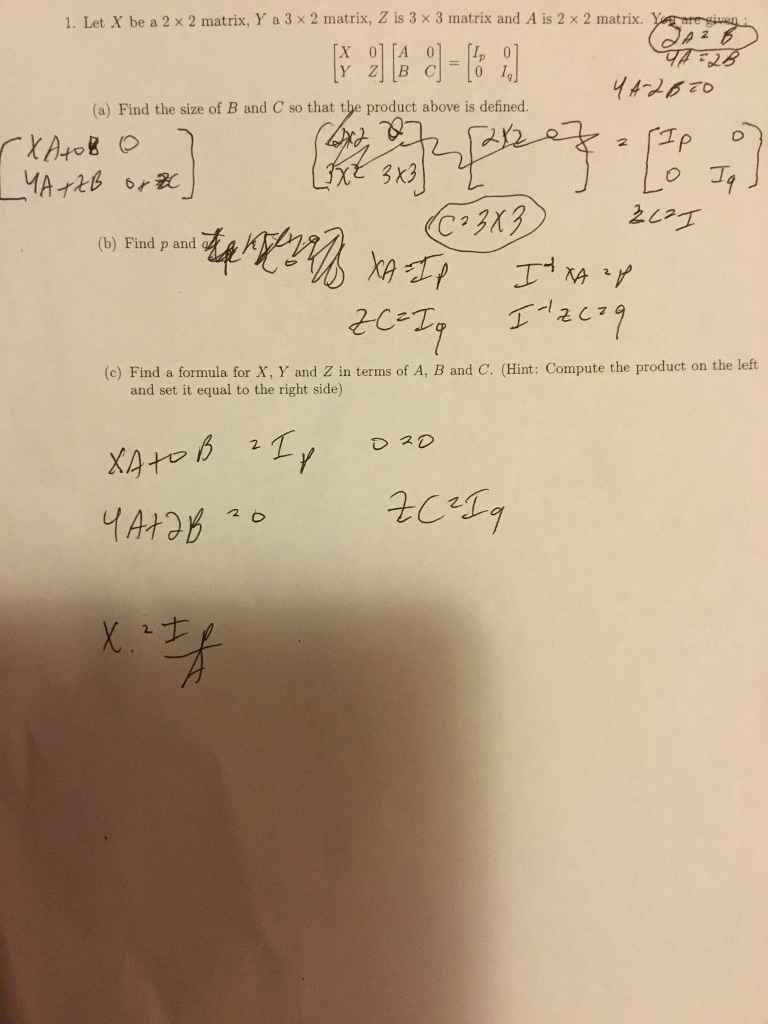 1. Let X be a 2 × 2 matrix, Y a 3 × 2 matrix, Z is 3 × 3 matrix and A is 2 × 2 matrix. You are given :
2A = B
4A = 2B
4A-2B=0
[X 0] [A 0] = [Ip 0]
[Y Z] [B C] [0 Iq]
(a) Find the size of B and C so that the product above is defined.
[XA+0B 0]
[YA+ZB 0+ZC]
[2x2 0] [2x2 0] = [Ip 0]
[3x2 3x3] [0 Iq]
C=3x3
ZC=I
(b) Find p and q
XA=Ip I⁻¹XA=p
ZC=Iq I⁻¹ZC=q
(c) Find a formula for X, Y and Z in terms of A, B and C. (Hint: Compute the product on the left
and set it equal to the right side)
XA+0B = Ip 0=0
YA+ZB =0 ZC=Iq
X = Ip/A